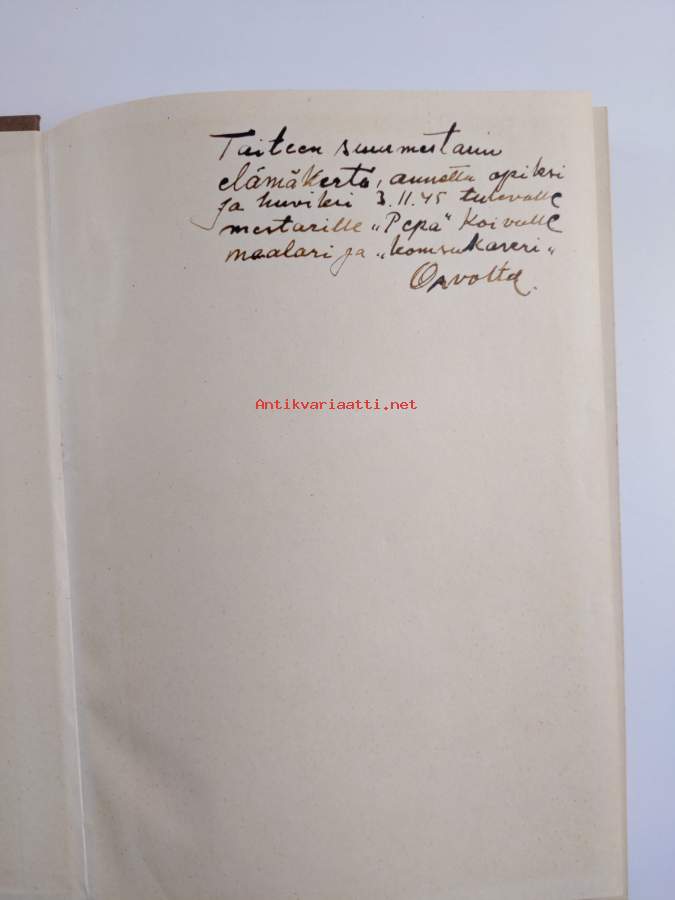 Taiteen suurmestarin
elämäkerta, annettu opiksi
ja huviksi 3.11.45 tulevalle
mestarille „Pepa" Koivulle
maalari ja „komsukaveri„
Orvolta.
Antikvariaatti.net